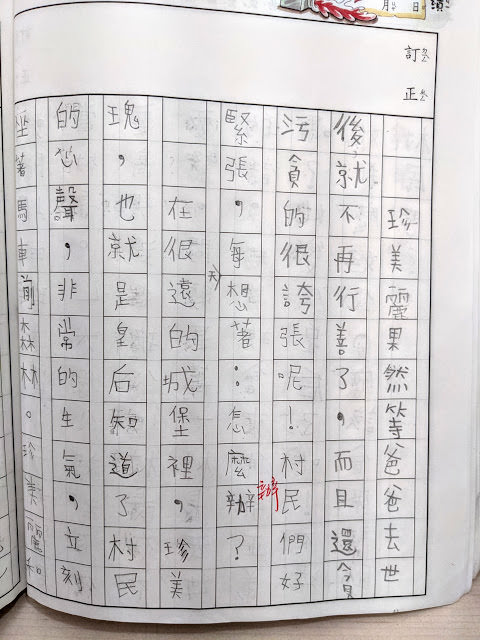 月 日 績
訂
正
珍美麗果然等爸爸去世
後就不再行善了，而且還會
污貪的很誇張呢！村民們好
緊張，每天想著：怎麼辦？
辦
在很遠的城堡裡，珍美
瑰，也就是皇后知道了村民
的心聲，非常的生氣，立刻
坐著馬車前森林。珍美麗和